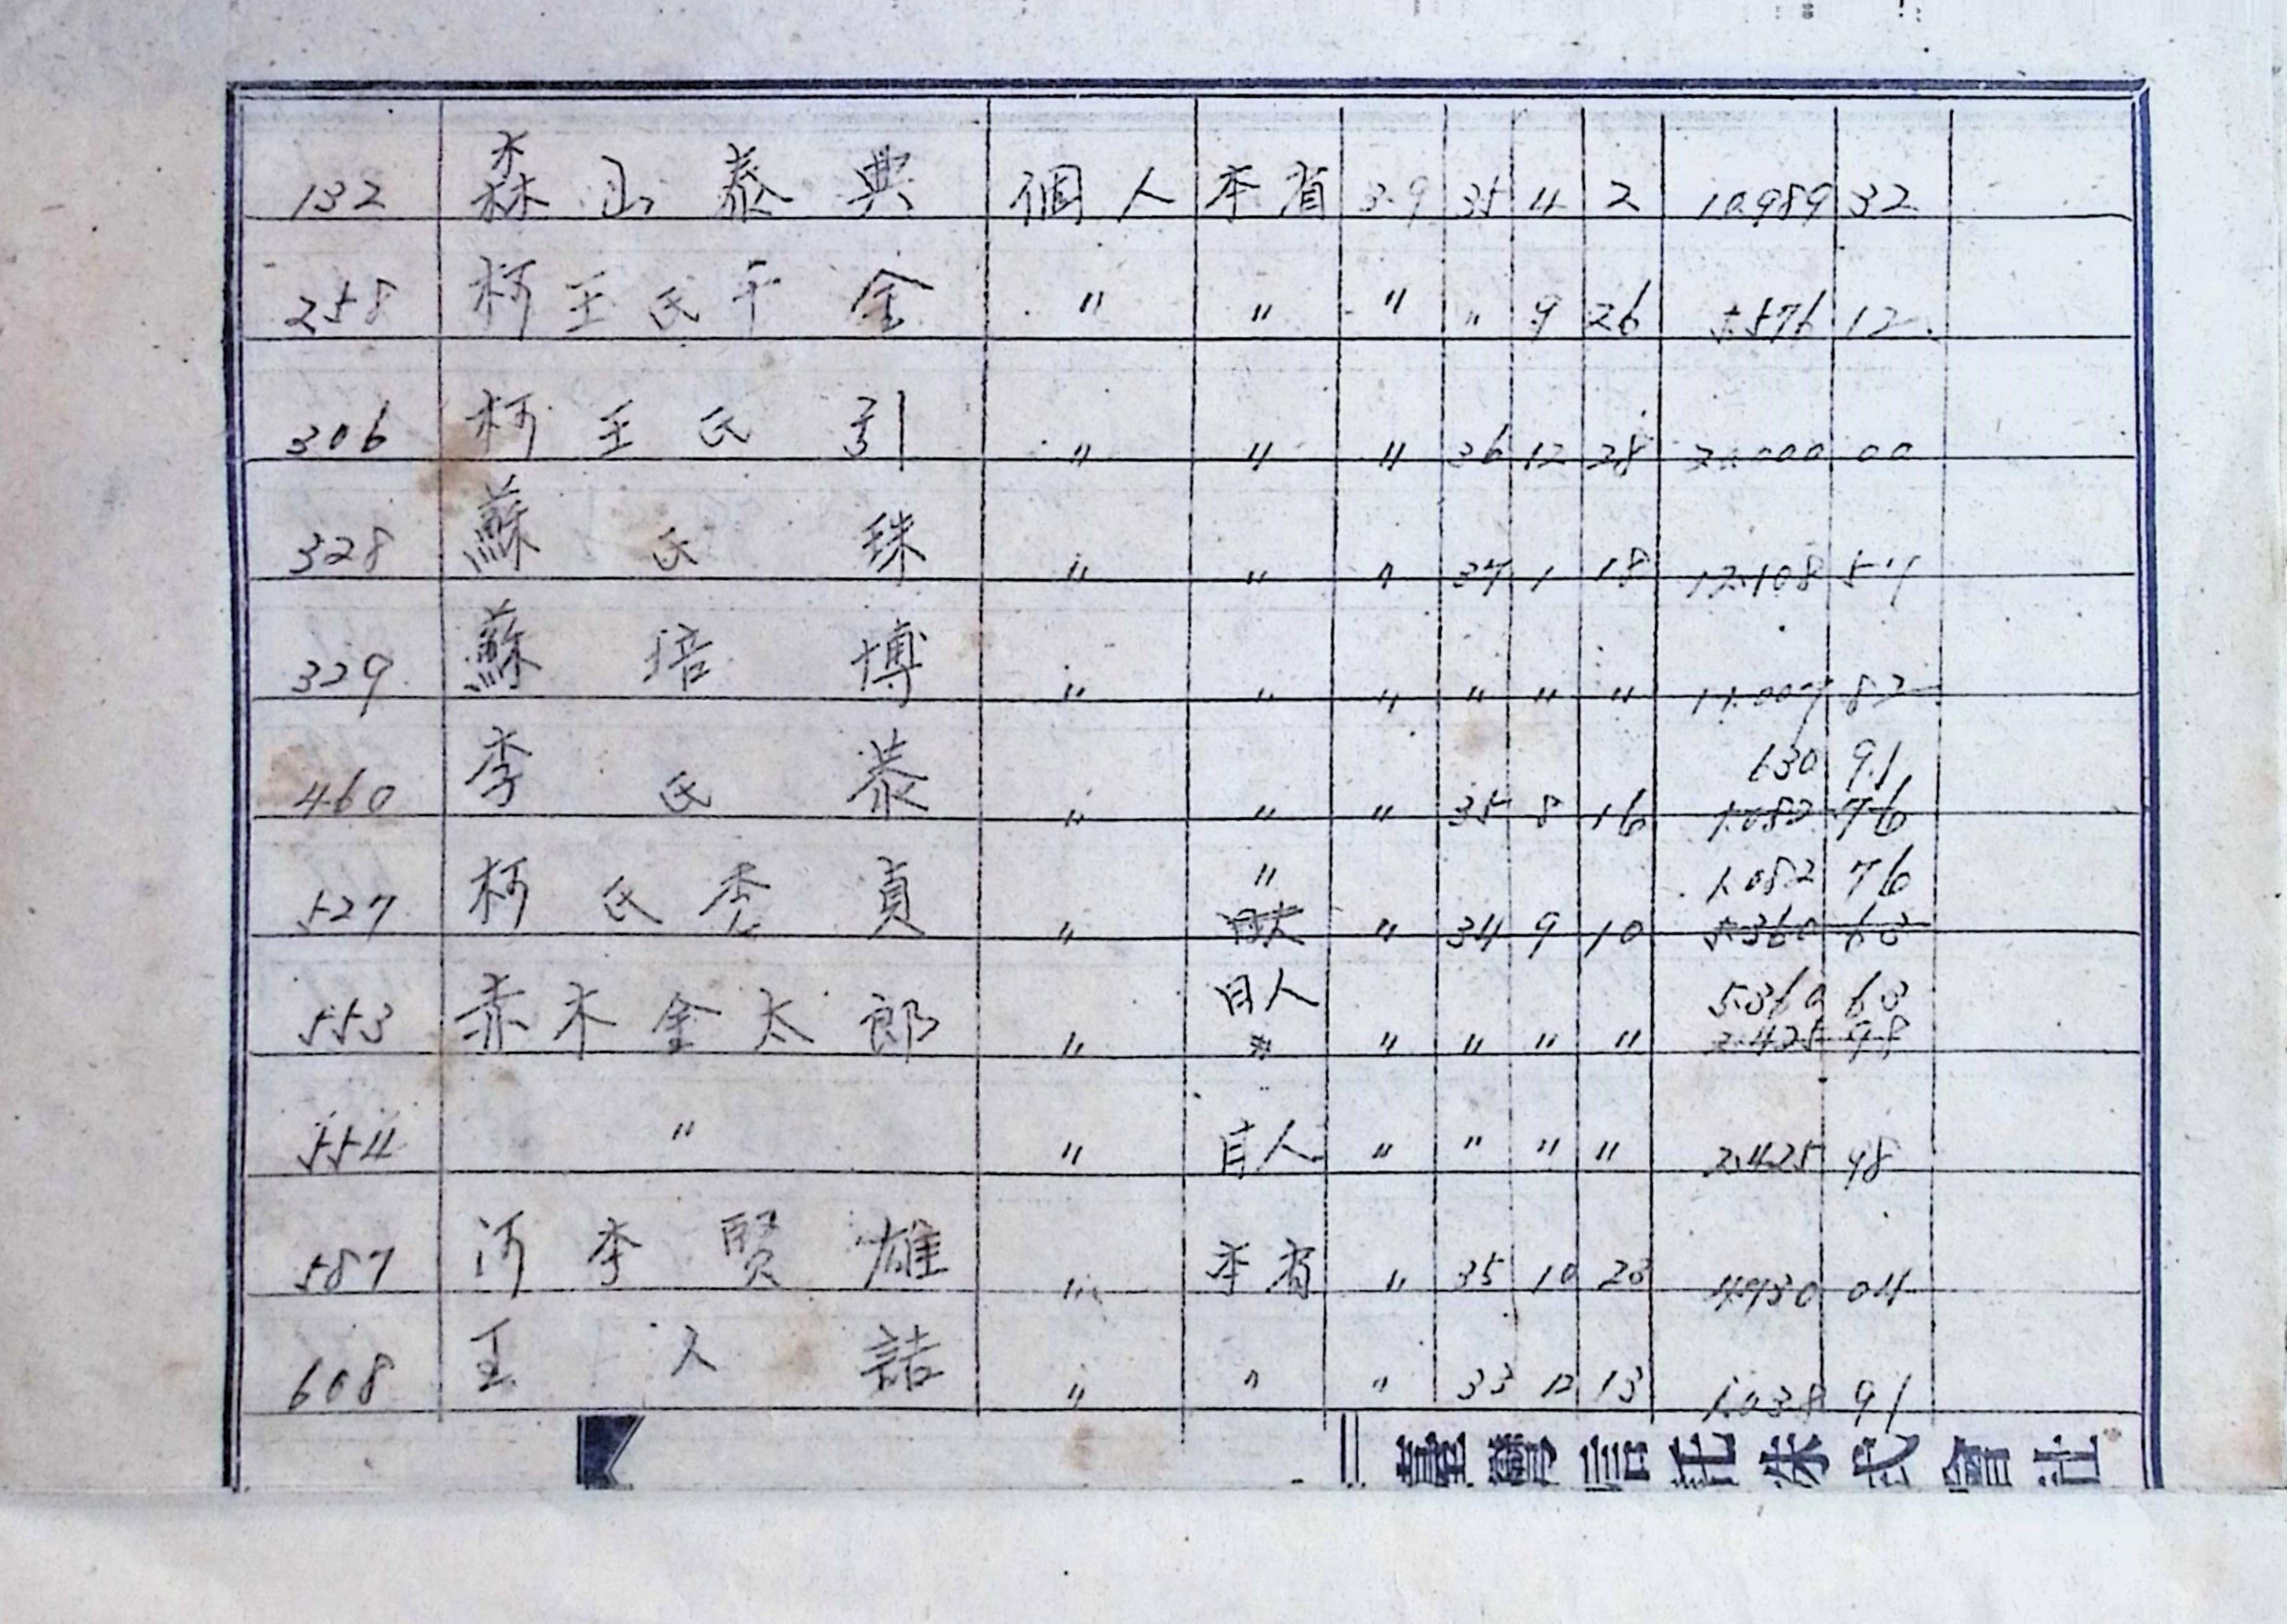 132 森山泰典 個人 本省 3.9 35 4 2 10.989 32
258 柯王氏千金 〃 〃 〃 〃 9 26 5.576 12
306 柯王氏引 〃 〃 〃 36 12 28 000 00
328 蘇氏珠 〃 〃 〃 34 1 18 12.108 57
329 蘇培博 〃 〃 〃 〃 〃 〃 11.007 82
130 91
460 李氏恭 〃 〃 〃 35 8 16 1.082 76
〃 1.082 76
527 柯氏秀貞 〃 日人 〃 34 9 10 5.360 63
日人 5.360 63
553 赤木金太郎 〃 〃 〃 〃 〃 〃 2.425 98
554 〃 〃 日人 〃 〃 〃 〃 2.425 98
587 河李賢雄 〃 本省 〃 35 10 23 4.930 04
608 王人喆 〃 〃 〃 33 12 13 1.038 91
臺灣信託株式會社